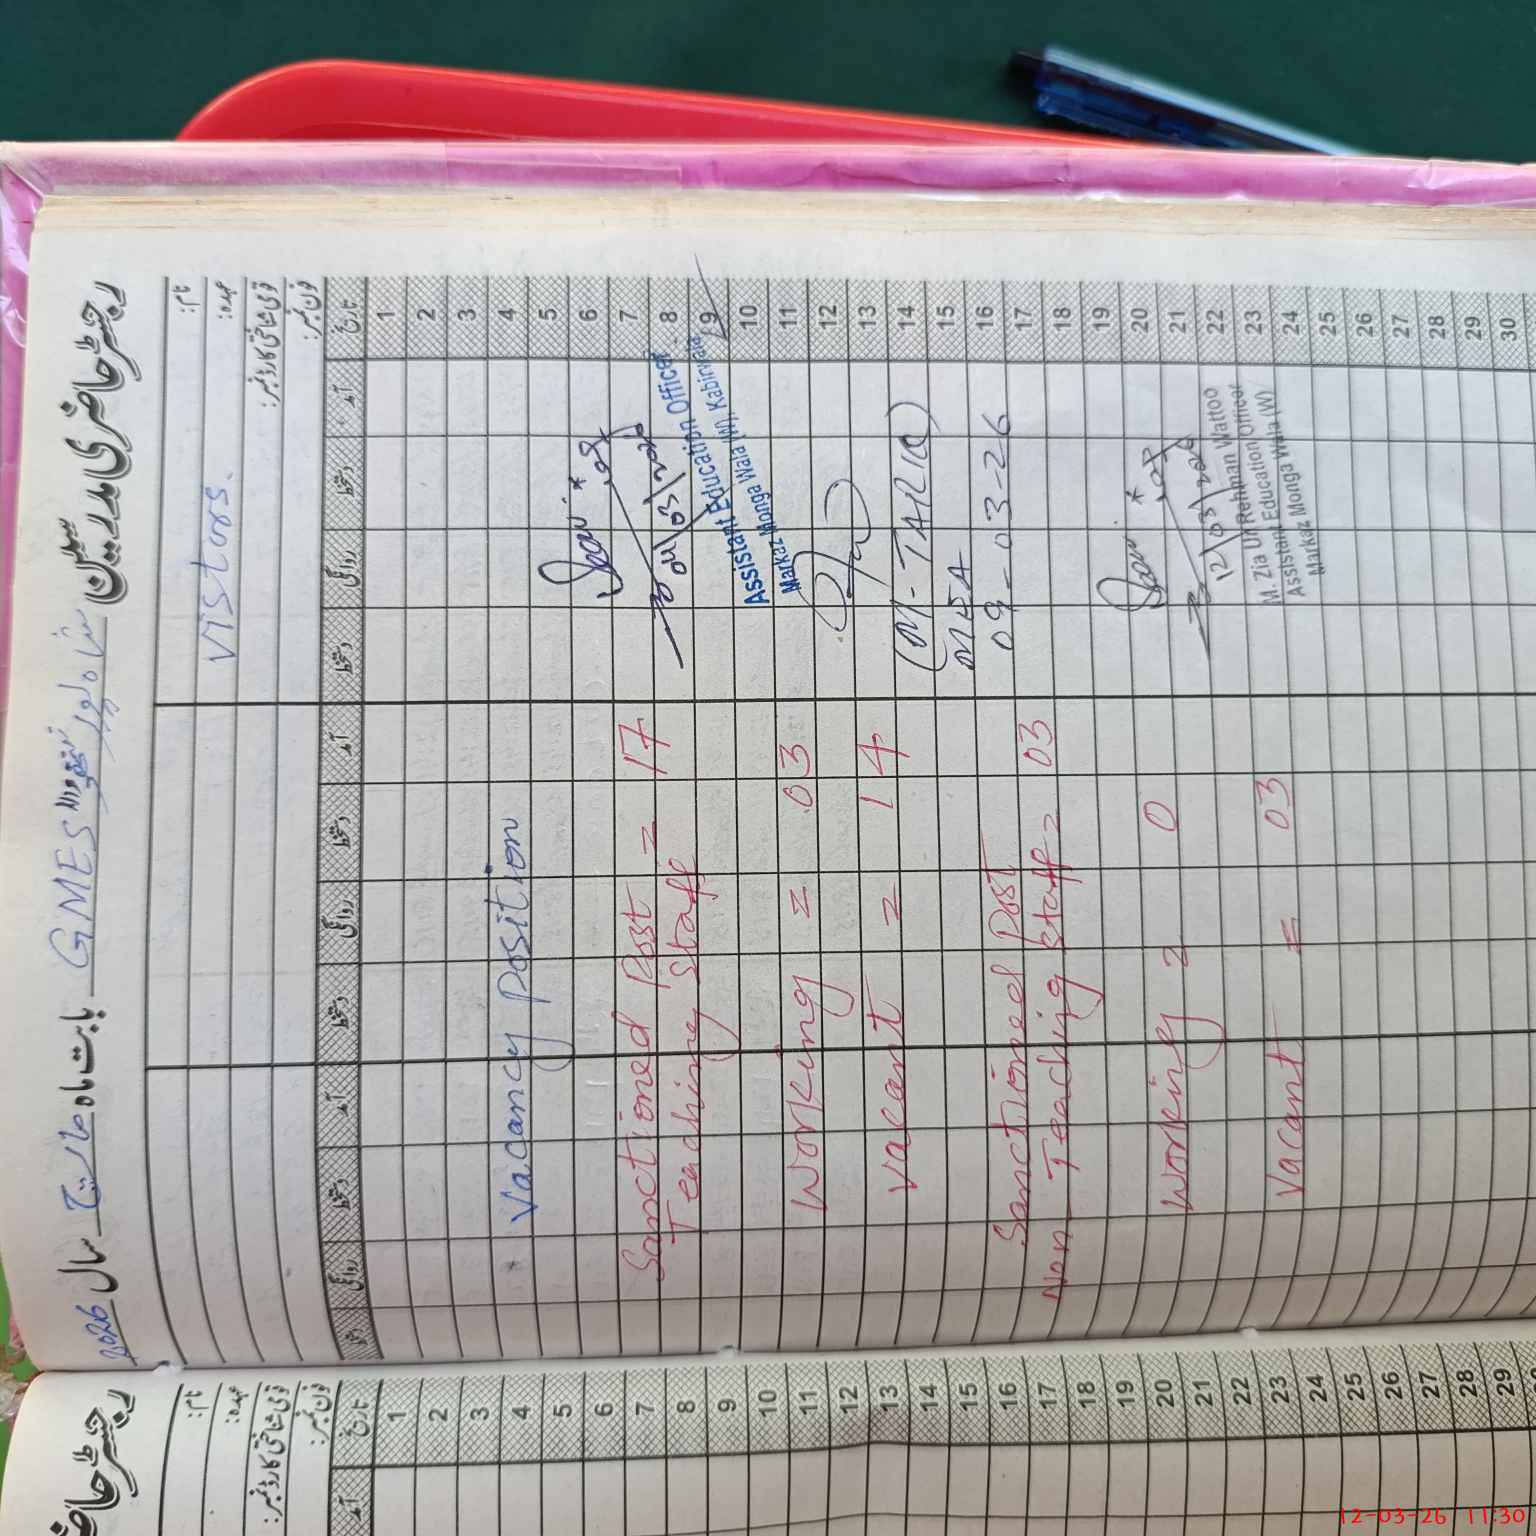 رجسٹر حاضری مدرسین
GMES
بابت ماہ مارچ سال 2026
نام:
Vistors.
عہدہ:
قومی شناختی کارڈ نمبر:
فون نمبر:
تاریخ آمد دستخط روانگی دستخط آمد دستخط روانگی دستخط آمد دستخط روانگی دستخط
1
2
3
4
5
6
7
8
9
10
11
12
13
14
15
16
17
18
19
20
21
22
23
24
25
26
27
28
29
30
Vacancy Position
Sanctioned Post = 17
Teaching Staff
Working = 03
Vacant = 14
Sanctioned Post
Non-Teaching Staff = 03
Working = 0
Vacant = 03
04/03/2026
Assistant Education Officer
Markaz Monga Wala (W), Kabirwala
(M-TARIQ)
MEA
09-03-26
12/03/2026
M. Zia Ur Rehman Wattoo
Assistant Education Officer
Markaz Monga Wala (W)
نام:
عہدہ:
قومی شناختی کارڈ نمبر:
فون نمبر:
تاریخ آمد
1
2
3
4
5
6
7
8
9
10
11
12
13
14
15
16
17
18
19
20
21
22
23
24
25
26
27
28
29
12-03-26 11:30